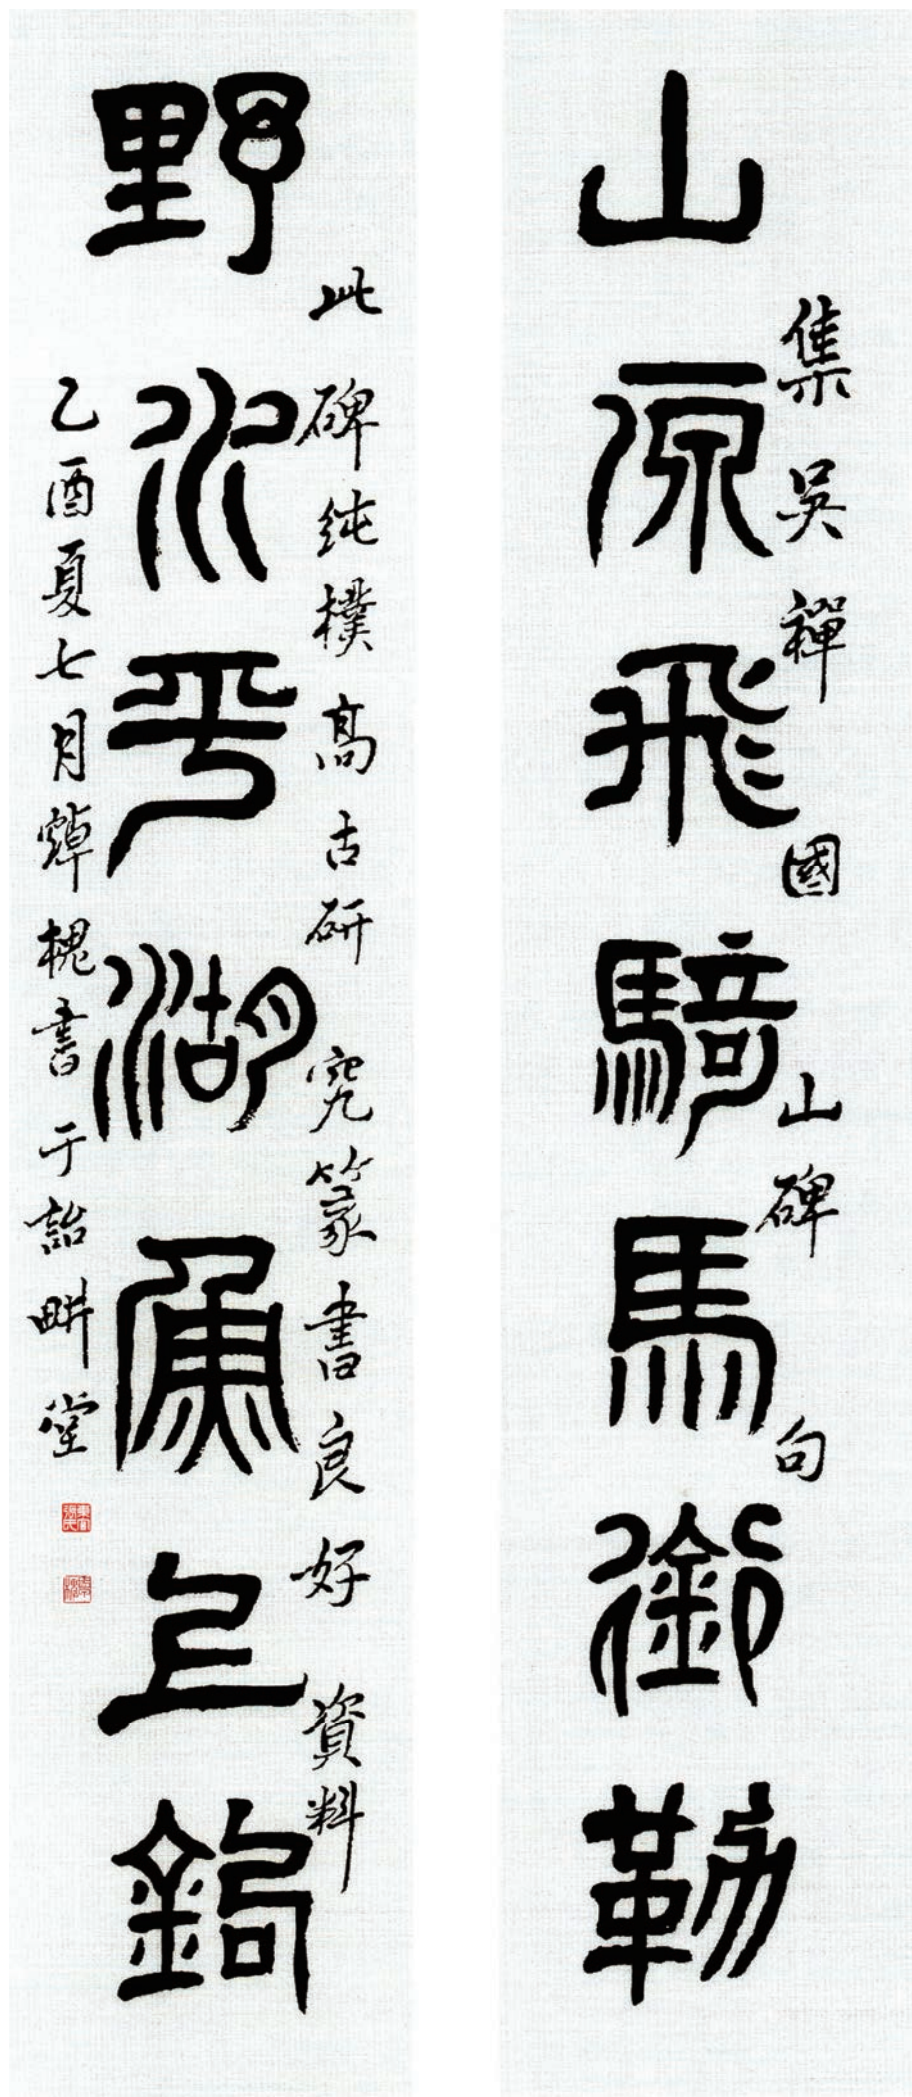 山原飛騎馬銜勒
集吳禪國山碑句
野水平湖魚上鉤
此碑純樸高古研究篆書良好資料
乙酉夏七月焯槐書于詒畊堂